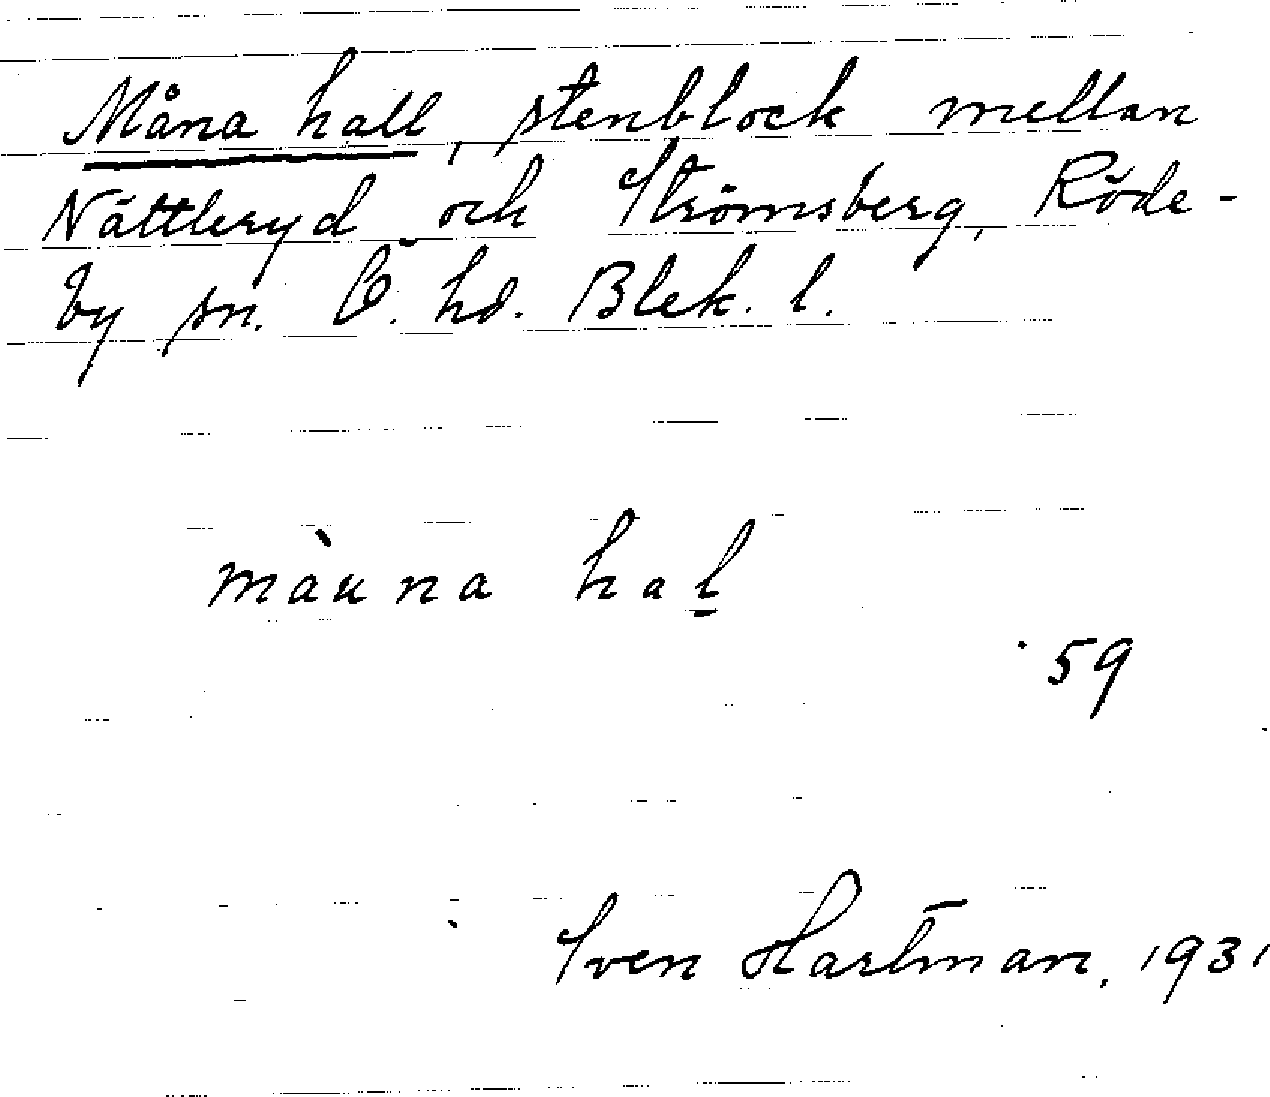 Måna hall, stenblock mellan
Nättleryd och Strömsberg, Röde-
by sn. Ö. hd. Blek. l.
màuna hal̲
59
Sven Hartman, 1931